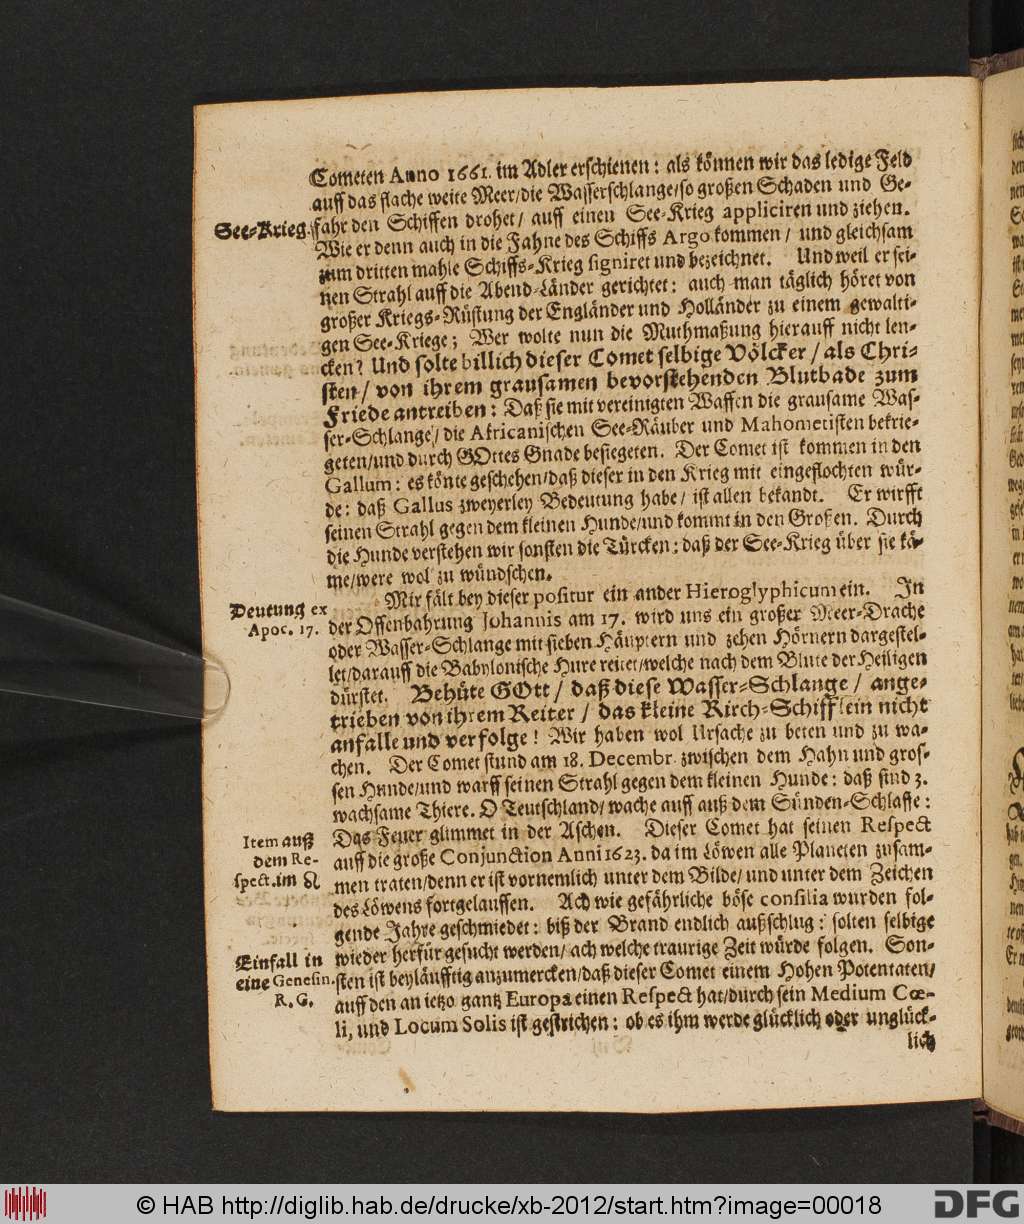 Cometen Anno 1661. im Adler erschienen: als können wir das ledige Feld
auff das flache weite Meer/die Wasserschlange/so großen Schaden und Ge-
See-Krieg.
fahr den Schiffen drohet/ auff einen See-Krieg appliciren und ziehen.
Wie er denn auch in die Fahne des Schiffs Argo kommen/ und gleichsam
zum dritten mahle Schiffs-Krieg signiret und bezeichnet. Und weil er sei-
nen Strahl auff die Abend-Länder gerichtet: auch man täglich höret von
großer Kriegs-Rüstung der Engländer und Holländer zu einem gewalti-
gen See-Kriege; Wer wolte nun die Muthmaßung hierauff nicht len-
cken? Und solte billich dieser Comet selbige Völcker/ als Chri-
sten/ von ihrem grausamen bevorstehenden Blutbade zum
Friede antreiben: Daß sie mit vereinigten Waffen die grausame Was-
ser-Schlange/ die Africanischen See-Räuber und Mahometisten bekrie-
geten/und durch GOttes Gnade besiegeten. Der Comet ist kommen in den
Gallum: es könte geschehen/daß dieser in den Krieg mit eingeflochten wür-
de: daß Gallus zweyerley Bedeutung habe/ ist allen bekandt. Er wirfft
seinen Strahl gegen dem kleinen Hunde/und kommt in den Großen. Durch
die Hunde verstehen wir sonsten die Türcken: daß der See-Krieg über sie kä-
me/were wol zu wündschen.
Deutung ex
Apoc. 17.
Mir fält bey dieser positur ein ander Hieroglyphicum ein. In
der Offenbahrung Johannis am 17. wird uns ein großer Meer-Drache
oder Wasser-Schlange mit sieben Häuptern und zehen Hörnern dargestel-
let/darauff die Babylonische Hure reitet/welche nach dem Blute der Heiligen
dürstet. Behüte GOtt/ daß diese Wasser-Schlange/ ange-
trieben von ihrem Reiter/ das kleine Kirch-Schifflein nicht
anfalle und verfolge! Wir haben wol Ursache zu beten und zu wa-
chen. Der Comet stund am 18. Decembr. zwischen dem Hahn und gros-
sen Hunde/und warff seinen Strahl gegen dem kleinen Hunde: daß sind 3.
wachsame Thiere. O Teutschland/ wache auff auß dem Sünden-Schlaffe:
Item auß
dem Re-
spect. im ♌
Das Feuer glimmet in der Aschen. Dieser Comet hat seinen Respect
auff die große Conjunction Anni 1623. da im Löwen alle Planeten zusam-
men traten/denn er ist vornemlich unter dem Bilde/ und unter dem Zeichen
des Löwens fortgelauffen. Ach wie gefährliche böse consilia wurden fol-
gende Jahre geschmiedet: biß der Brand endlich außschlug: solten selbige
Einfall in
eine Genesin.
R. G.
wieder herfür gesucht werden/ ach welche traurige Zeit würde folgen. Son-
sten ist beyläufftig anzumercken/daß dieser Comet einem Hohen Potentaten/
auff den an ietzo gantz Europa einen Respect hat/durch sein Medium Cœ-
li, und Locum Solis ist gestrichen: ob es ihm werde glücklich oder unglück-
lich
© HAB http://diglib.hab.de/drucke/xb-2012/start.htm?image=00018
DFG